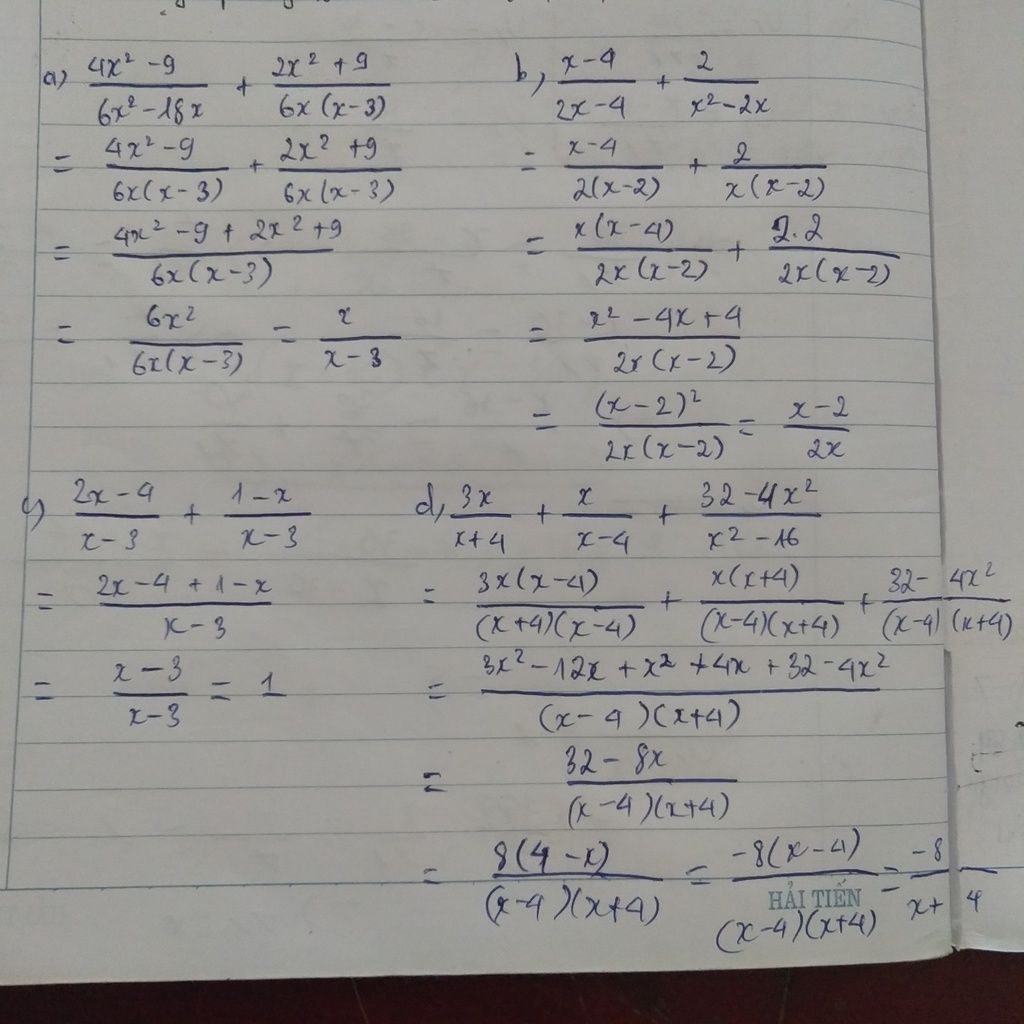 a) (4x² - 9)/(6x² - 18x) + (2x² + 9)/(6x(x-3))
= (4x² - 9)/(6x(x-3)) + (2x² + 9)/(6x(x-3))
= (4x² - 9 + 2x² + 9)/(6x(x-3))
= 6x²/(6x(x-3)) = x/(x-3)
b, (x-4)/(2x-4) + 2/(x² - 2x)
= (x-4)/(2(x-2)) + 2/(x(x-2))
= x(x-4)/(2x(x-2)) + 2.2/(2x(x-2))
= (x² - 4x + 4)/(2x(x-2))
= (x-2)²/(2x(x-2)) = (x-2)/(2x)
c) (2x-4)/(x-3) + (1-x)/(x-3)
= (2x-4+1-x)/(x-3)
= (x-3)/(x-3) = 1
d, 3x/(x+4) + x/(x-4) + (32-4x²)/(x²-16)
= 3x(x-4)/((x+4)(x-4)) + x(x+4)/((x-4)(x+4)) + (32-4x²)/((x-4)(x+4))
= (3x² - 12x + x² + 4x + 32 - 4x²)/((x-4)(x+4))
= (32-8x)/((x-4)(x+4))
= 8(4-x)/((x-4)(x+4)) = -8(x-4)/((x-4)(x+4)) = -8/(x+4)
HẢI TIẾN